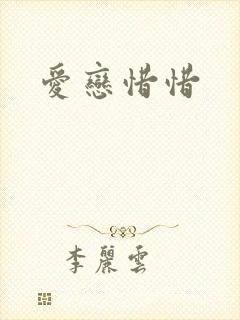 愛戀惜惜
李麗雲